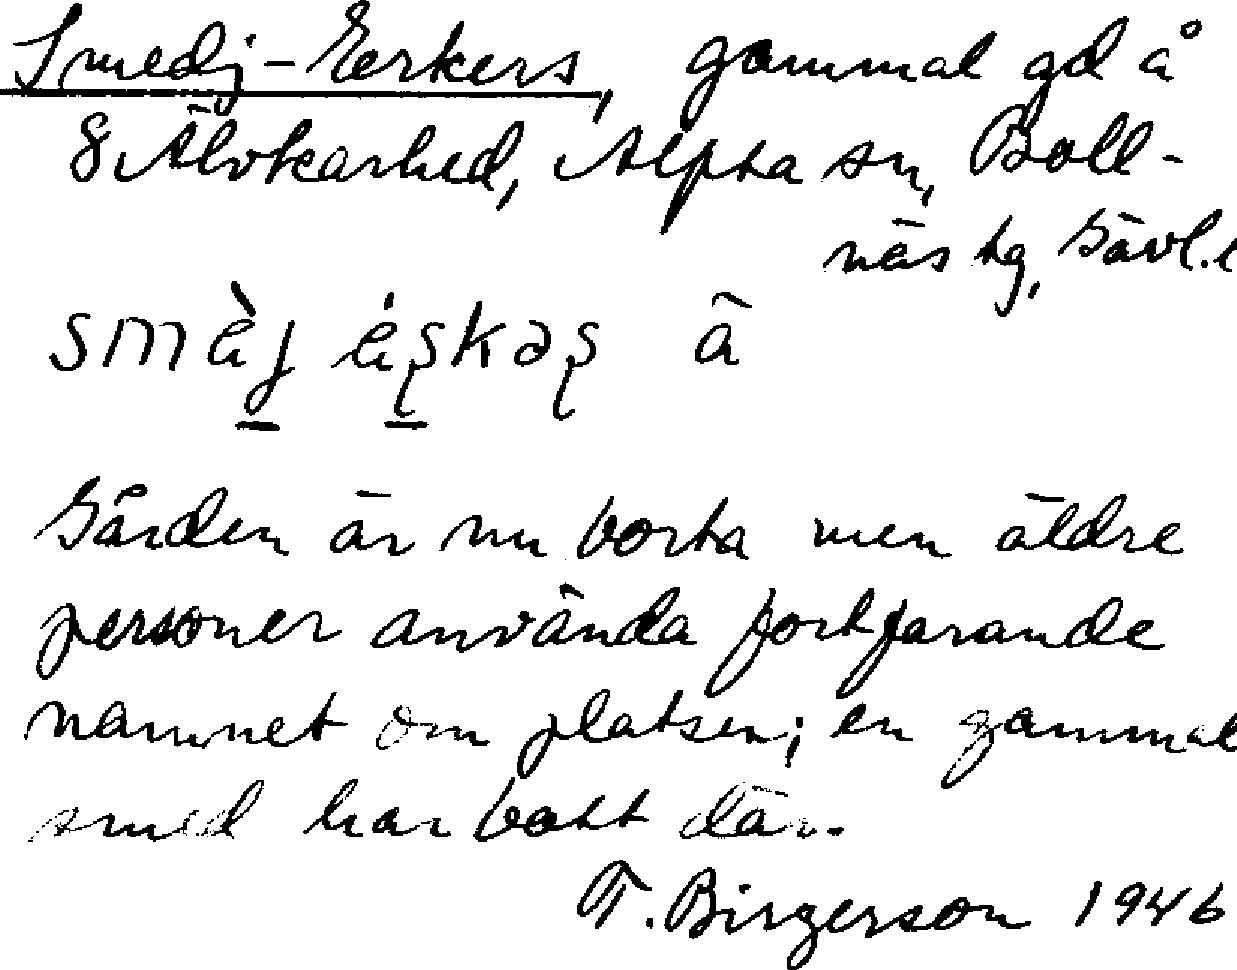 Smedj-Eerkers, gammal gd å
8 Älvkarhed, Alfta sn, Boll-
näs tg, Gävl.l
smèj éʂkəʂ ä
Gården är nu borta men äldre
personer använda fortfarande
namnet om platsen; en gammal
smed har bott där.
T. Birgerson 1946